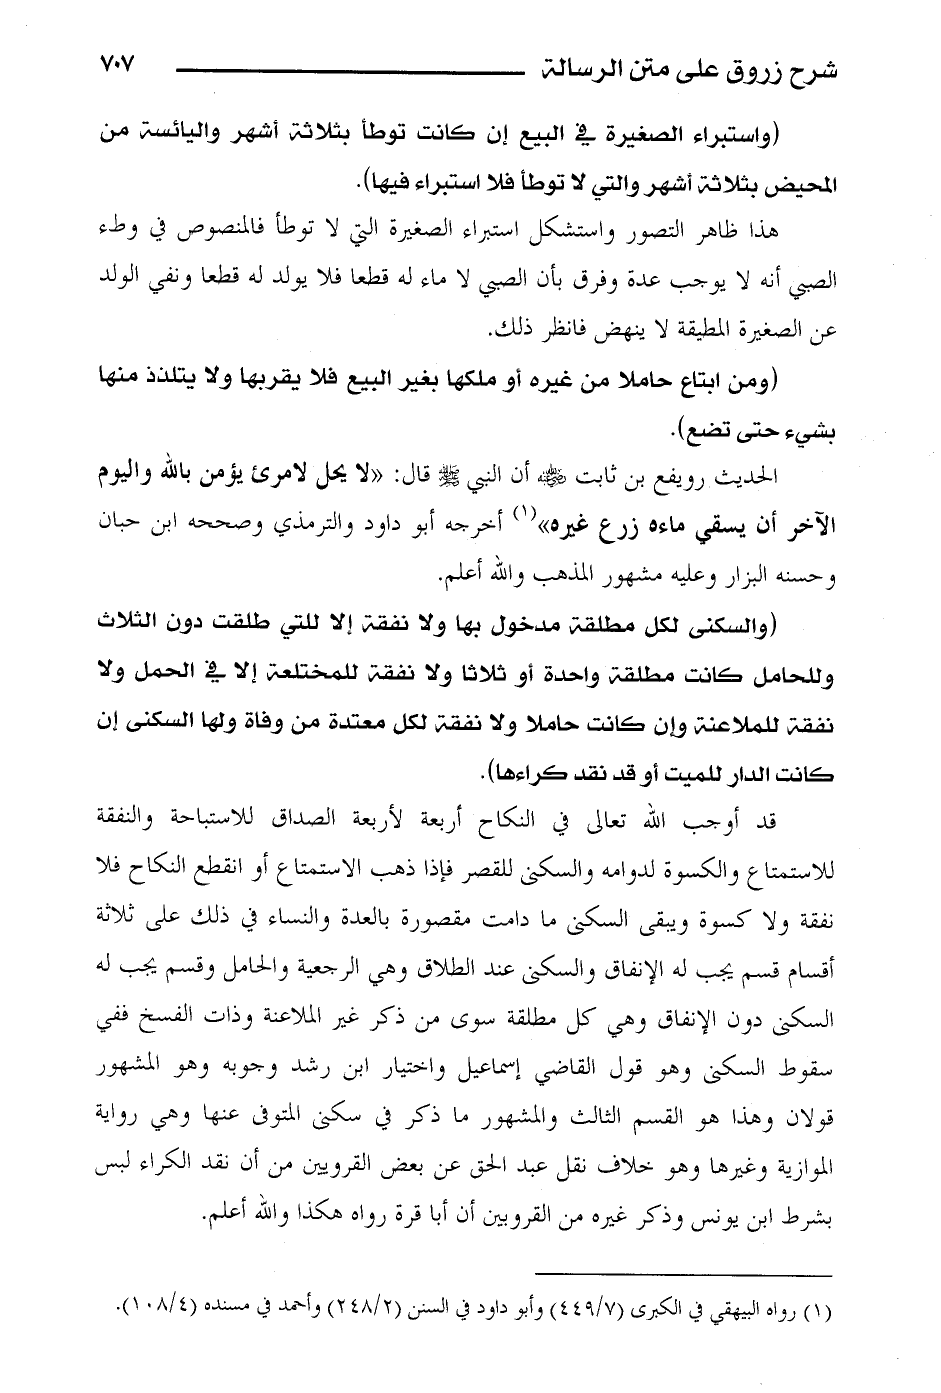 شرح زروق على متن الرسالة ٧٠٧
(واستبراء الصغيرة في البيع إن كانت توطأ بثلاثة أشهر واليائسة من
المحيض بثلاثة أشهر والتي لا توطأ فلا استبراء فيها).
هذا ظاهر التصور واستشكل استبراء الصغيرة التي لا توطأ فالمنصوص في وطء
الصبي أنه لا يوجب عدة وفرق بأن الصبي لا ماء له قطعا فلا يولد له قطعا ونفي الولد
عن الصغيرة المطيقة لا ينهض فانظر ذلك.
(ومن ابتاع حاملا من غيره أو ملكها بغير البيع فلا يقربها ولا يتلذذ منها
بشيء حتى تضع).
الحديث رويفع بن ثابت رضي الله عنه أن النبي ﷺ قال: «لا يحل لامرئ يؤمن بالله واليوم
الآخر أن يسقي ماءه زرع غيره»(١) أخرجه أبو داود والترمذي وصححه ابن حبان
وحسنه البزار وعليه مشهور المذهب والله أعلم.
(والسكنى لكل مطلقة مدخول بها ولا نفقة إلا للتي طلقت دون الثلاث
وللحامل كانت مطلقة واحدة أو ثلاثا ولا نفقة للمختلعة إلا في الحمل ولا
نفقة للملاعنة وإن كانت حاملا ولا نفقة لكل معتدة من وفاة ولها السكنى إن
كانت الدار للميت أو قد نقد كراءها).
قد أوجب الله تعالى في النكاح أربعة لأربعة الصداق للاستباحة والنفقة
للاستمتاع والكسوة لدوامه والسكنى للقصر فإذا ذهب الاستمتاع أو انقطع النكاح فلا
نفقة ولا كسوة ويبقى السكنى ما دامت مقصورة بالعدة والنساء في ذلك على ثلاثة
أقسام قسم يجب له الإنفاق والسكنى عند الطلاق وهي الرجعية والحامل وقسم يجب له
السكنى دون الإنفاق وهي كل مطلقة سوى من ذكر غير الملاعنة وذات الفسخ ففي
سقوط السكنى وهو قول القاضي إسماعيل واختيار ابن رشد وجوبه وهو المشهور
قولان وهذا هو القسم الثالث والمشهور ما ذكر في سكنى المتوفى عنها وهي رواية
الموازية وغيرها وهو خلاف نقل عبد الحق عن بعض القرويين من أن نقد الكراء لبس
بشرط ابن يونس وذكر غيره من القرويين أن أبا قرة رواه هكذا والله أعلم.
(١) رواه البيهقي في الكبرى (٤٤٩/٧) وأبو داود في السنن (٢٤٨/٢) وأحمد في مسنده (١٠٨/٤).